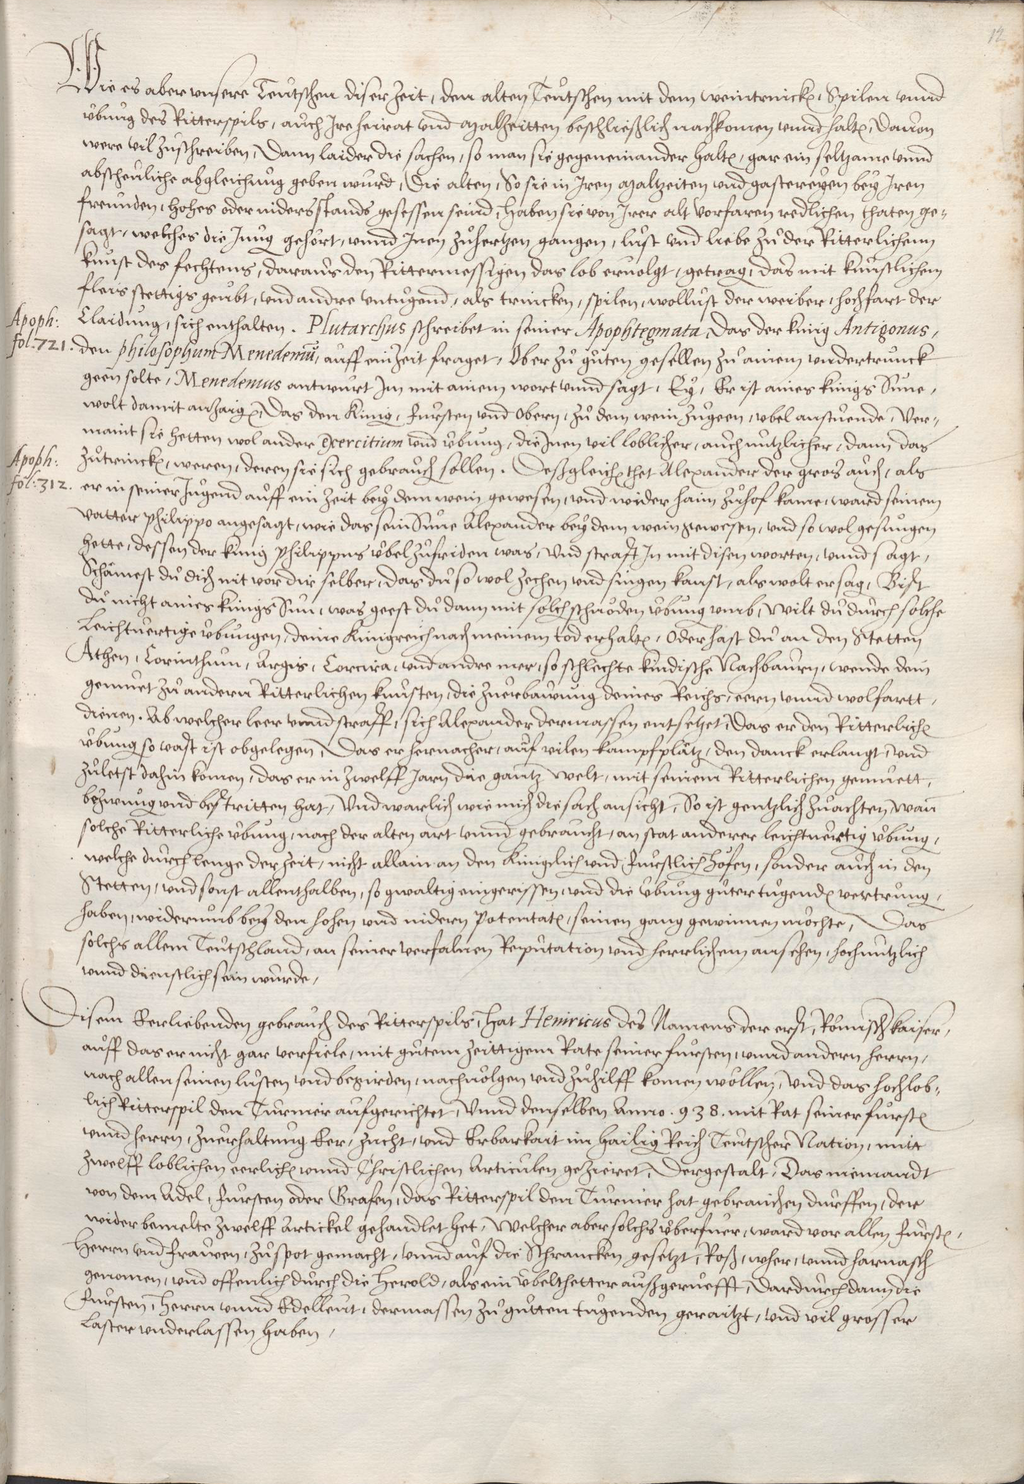 12
Wie es aber unsere Teütschen diser Zeit, den alten Teütschen mit dem weintrincken, Spilen unnd
übung des Ritterspils, auch Ire heirat und malzeitten beschließlich nachkomen unnd halten, Davon
were vil zuschreiben, Dann laider die sachen, so man sie gegeneinander halt, gar ein seltzame unnd
abscheuliche abgleichung geben wurd, Die alten, So sie in Iren maltzeiten und gastereyen bey Iren
freunden, hohes oder niders stands gesessen seind, haben sie von Irer alt vorfaren redlichen thaten ge-
sagt, welches die Jung gehört, unnd Inen zuhertzen gangen, lust und liebe zu der Ritterlichenn
kunst des fechtens, daraus den Rittermessigen das lob ervolgt, getragen, das mit künstlichem
fleis stettigs geübt, und andre untugend, als trincken, spilen, wollust der weiber, hochfart der
Apoph:
Claidung, sich enthalten. Plutarchus schreibet in seiner Apophtegmata, Das der künig Antigonus,
fol: 721.
den philosophum Menedemum, auff ein Zeit fraget, Ob er zu guten gesellen zu ainem undertrunck
geen solte, Menedemus antwurt Im mit ainem wort unnd sagt, Ey, Er ist aines künigs Sune,
wolt damit anzaigen, Das den Künig, fursten und Obern, zu dem wein zugeen, übel anstuende, Ver-
maint sie hetten wol ander Exercitium und übung, die Inen vil loblicher, auch nutzlicher, dann das
Apoph:
zutrincken, weren, deren sie sich gebrauchen sollen. Deßgleichen thet Alexander der gros auch, als
fol: 312.
er in seiner Jugend auff ein Zeit bey dem wein gewesen, und wider haim zuhof kame, ward seinem
vatter philippo angesagt, wie das sein Sune Alexander bey dem wein gewesen, und so wol gesungen
hette, dessen der künig philippus übel zufriden was, und strafft In mit disen worten, unnd sagt,
Schämest du dich nit vor dir selber, das du so wol zechen und singen kanst, als wolt er sagen, Bist
du nicht aines künigs Sun, was geest du dann mit solch schnöden übung umb, Wilt du durch solche
Leichtvertige übungen, deine Künigreich nach meinem tod erhalten, Oder hast du an den Stetten
Athen, Corinthum, Argis, Corcira, und andre mer, so schlechte kindische Nachbaurn, wende dein
gemuet zu andern Ritterlichen künsten, die zu erbawung deines Reichs, eern unnd wolfartt,
dienen. Ab welcher leer unnd straff, sich Alexander dermassen entsetzet, das er den Ritterlichen
übung so vast ist obgelegen, Das er hernacher, auf vilen kampfplätzen, den danck erlangt, und
zuletst dahin komen, das er in zwelff Jaren die gantz welt, mit seinem Ritterlichen gemuett,
bezwung und bestritten hat, Und warlich wie mich die sach ansicht, So ist gentzlich zu achten, wan
solche Ritterliche übung, nach der alten art unnd gebraucht, an stat anderer leichtvertig übung,
welche durch lenge der Zeit, nicht allain an den Künglich und fürstlich höfen, sonder auch in den
Stetten, und sonst allenthalben, so gwaltig eingerissen, und die übung guter tugenden vertrung,
haben, widerumb bey den hohen und nidern Potentaten, seinen gang gewinnen möchte, Das
solchs allem Teutschland, an seiner verfalnen Reputation und herrlichem ansehen, hochnutzlich
unnd dienstlich sein wurde,
Disem Eerliebenden gebrauch des Ritterspils, hat Heinricus des Namens der erst, Römisch kaiser,
auff das er nicht gar verfiele, mit gutem zeittigem Rate seiner fursten, unnd andern herrn,
nach allen seinen lusten und begirden, nachvolgen und zuhilff komen wöllen, Und das hochlob-
lich Ritterspil den Turnier aufgerichtet, Unnd denselben Anno. 938. mit Rat seiner fursten
unnd herrn, zu erhaltung Eer, Zucht, und Erbarkait im Hailig Reich Teutscher Nation, mitt
zwelff loblichen eerlichen unnd Christlichen Articulen gezieret, Dergestalt, Das niemandt
von dem Adel, fursten oder Grafen, das Ritterspil den Turnier hat gebrauchen durffen, der
wider bemelte zwelff Artickel gehandlet het, Welcher aber solchs überfuer, ward vor allen fursten,
Herren und frawen, zu spot gemacht, unnd auf die Schrancken gesetzt, Roß, wher, unnd harnasch
genomen, und offenlich durch die Herold, als ein übelthetter außgeruefft, Dardurch dann die
fursten, Herrn unnd Edelleut, dermassen zu gutten tugenden geraitzt, und vil grosser
Laster underlassen haben,